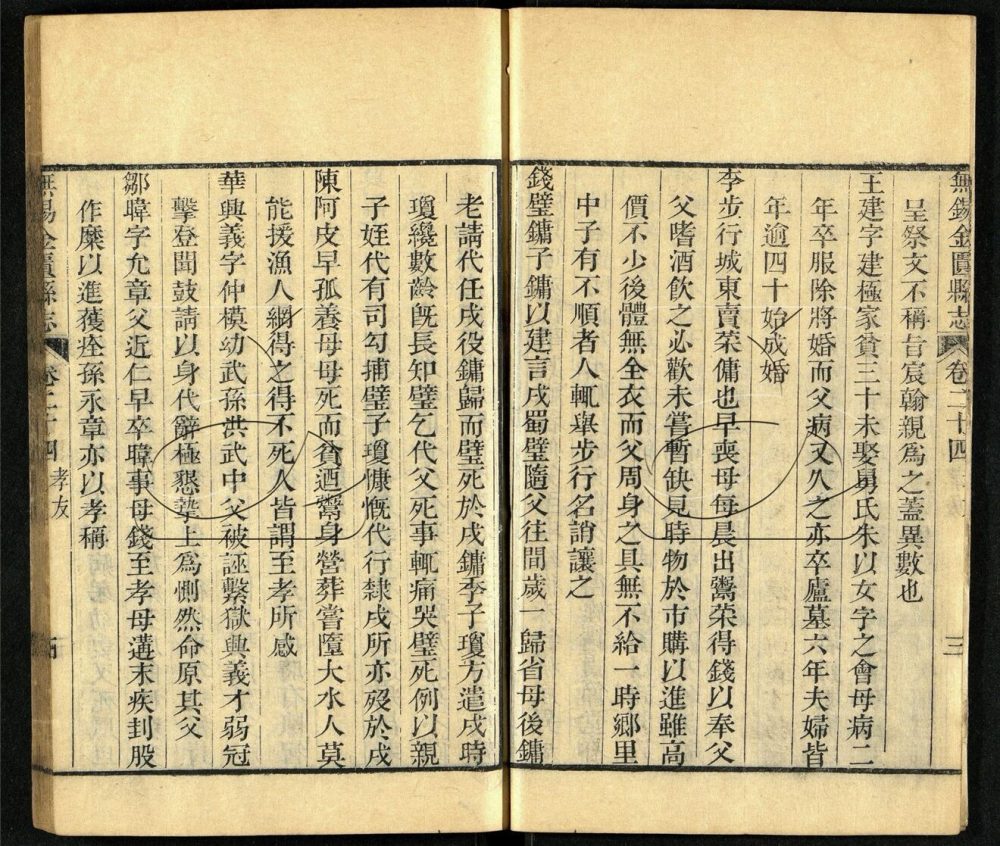 無錫金匱縣志 卷二十四 三
呈祭文不稱旨宸翰親為之蓋異數也
王建字建極家貧三十未娶舅氏朱以女字之會母病二
年卒服除將婚而父病又久之亦卒廬墓六年夫婦皆
年逾四十始成婚
李步行城東賣菜傭也早喪母每晨出鬻菜得錢以奉父
父嗜酒飲之必歡未嘗暫缺見時物於市購以進雖高
價不少後體無全衣而父周身之具無不給一時鄉里
中子有不順者人輒舉步行名誚讓之
錢璧鏞子鏞以建言戍蜀璧隨父往間歲一歸省母後鏞
老請代任戍役鏞歸而璧死於戍鏞季子瓊方遣戍時
瓊纔數齡旣長知璧乞代父死事輒痛哭璧死例以親
子姪代有司勾捕璧子瓊慷慨代行隸戍所亦歿於戍
陳阿皮早孤養母母死而貧迺鬻身營葬嘗墮大水人莫
能援漁人網得之得不死人皆謂至孝所感
華興義字仲模幼武孫洪武中父被誣繫獄興義才弱冠
擊登聞鼓請以身代辭極懇摯上為惻然命原其父
鄒暐字允章父近仁早卒暐事母錢至孝母遘末疾刲股
作糜以進獲痊孫永章亦以孝稱
無錫金匱縣志 卷二十四 孝友